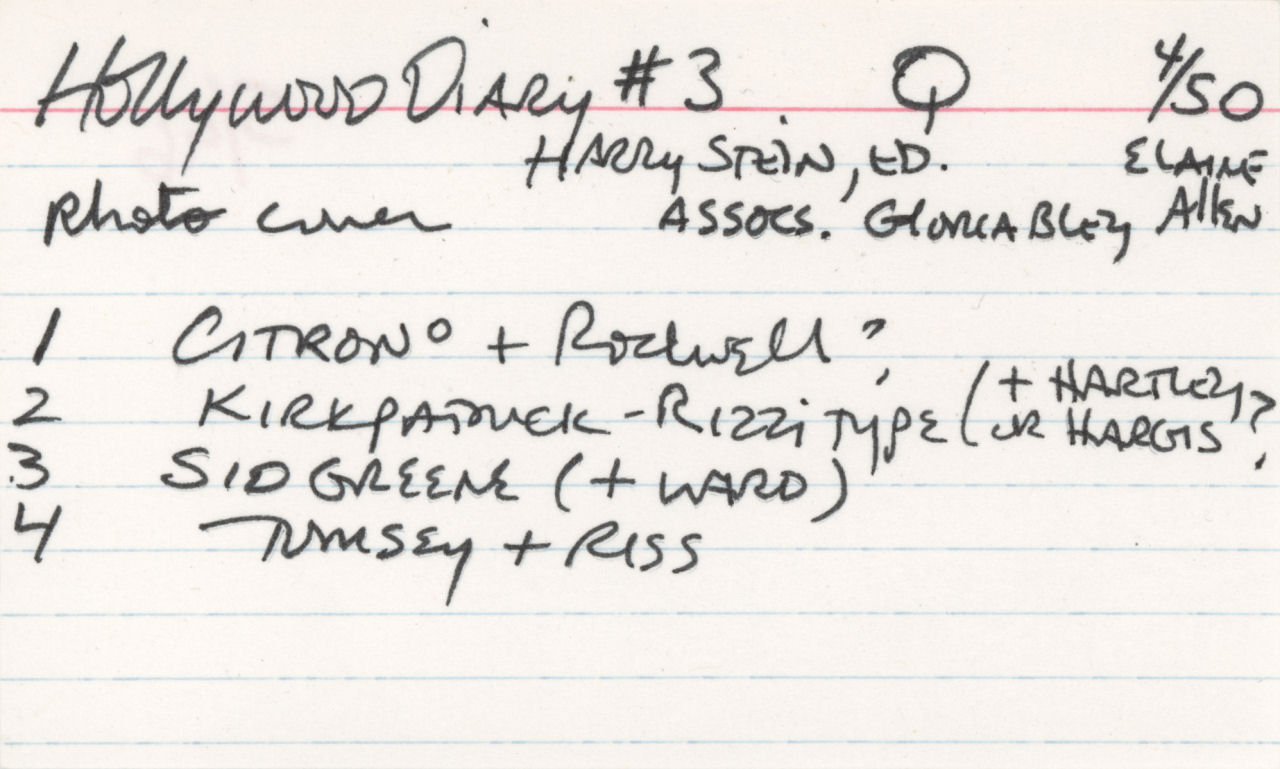 Hollywood Diary #3 Q 4/50
Harry Stein, Ed. Elaine
photo cover Assocs. Gloria Bley, Allen
1 Citron° + Rockwell?
2 Kirkpatrick-Rizzi type (+ Hartley
or Hargis?
3 Sid Greene (+ Ward)
4 Tumsey + Riss